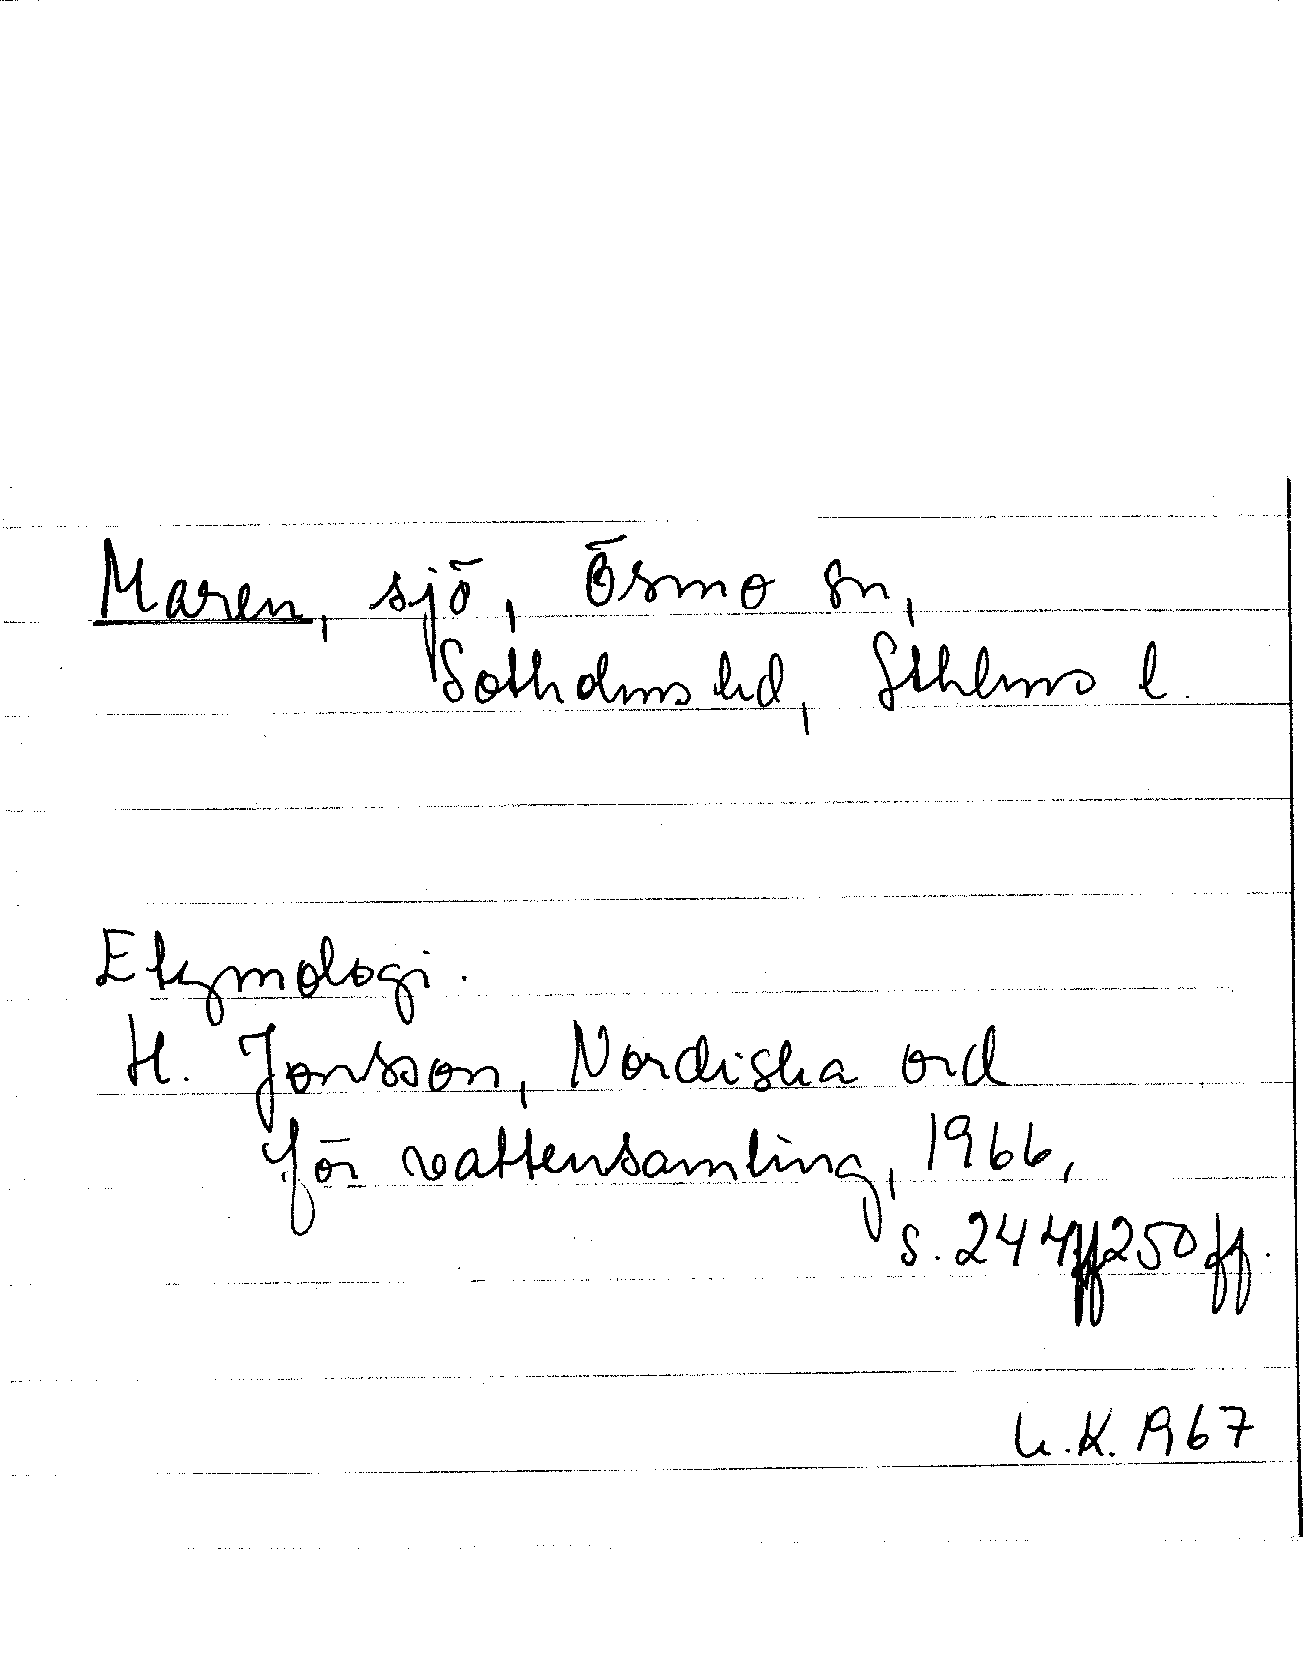 Maren, sjö, Ösmo sn,
Sotholms hd, Sthlms l.
Etymologi.
H. Jonsson, Nordiska ord
för vattensamling, 1966,
s. 244ff 250ff.
K. 1967